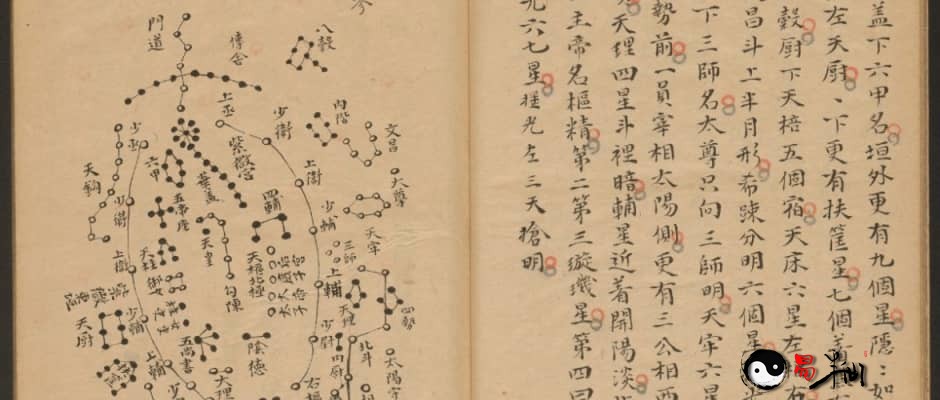 盖下六甲名垣外更有九個星隱
左天厨下更有扶筐星七個
穀厨下天棓五個宿天床六星左
昌斗上半月形希踈分明六個星
下三師名太尊只向三師明天牢六星
勢前一員宰相太陽側更有三公相西
天理四星斗裡暗輔星近着開陽淡
主帝名樞精第二第三璇璣星第四
光六七星摇光左三天槍明
八穀
傳舍
門道
内階
文昌
上丞
少衛
紫微宮
上衛
少輔
六甲
華盖
四輔
太尊
天牢
三師
少丞
天鈎
少衛
五帝座
天皇
勾陳
天樞北極
上輔
天理
四勢
上衛
天柱
天厨
少輔
五尚書
陰德
大理
少尉
内厨
北斗
太陽守
上輔